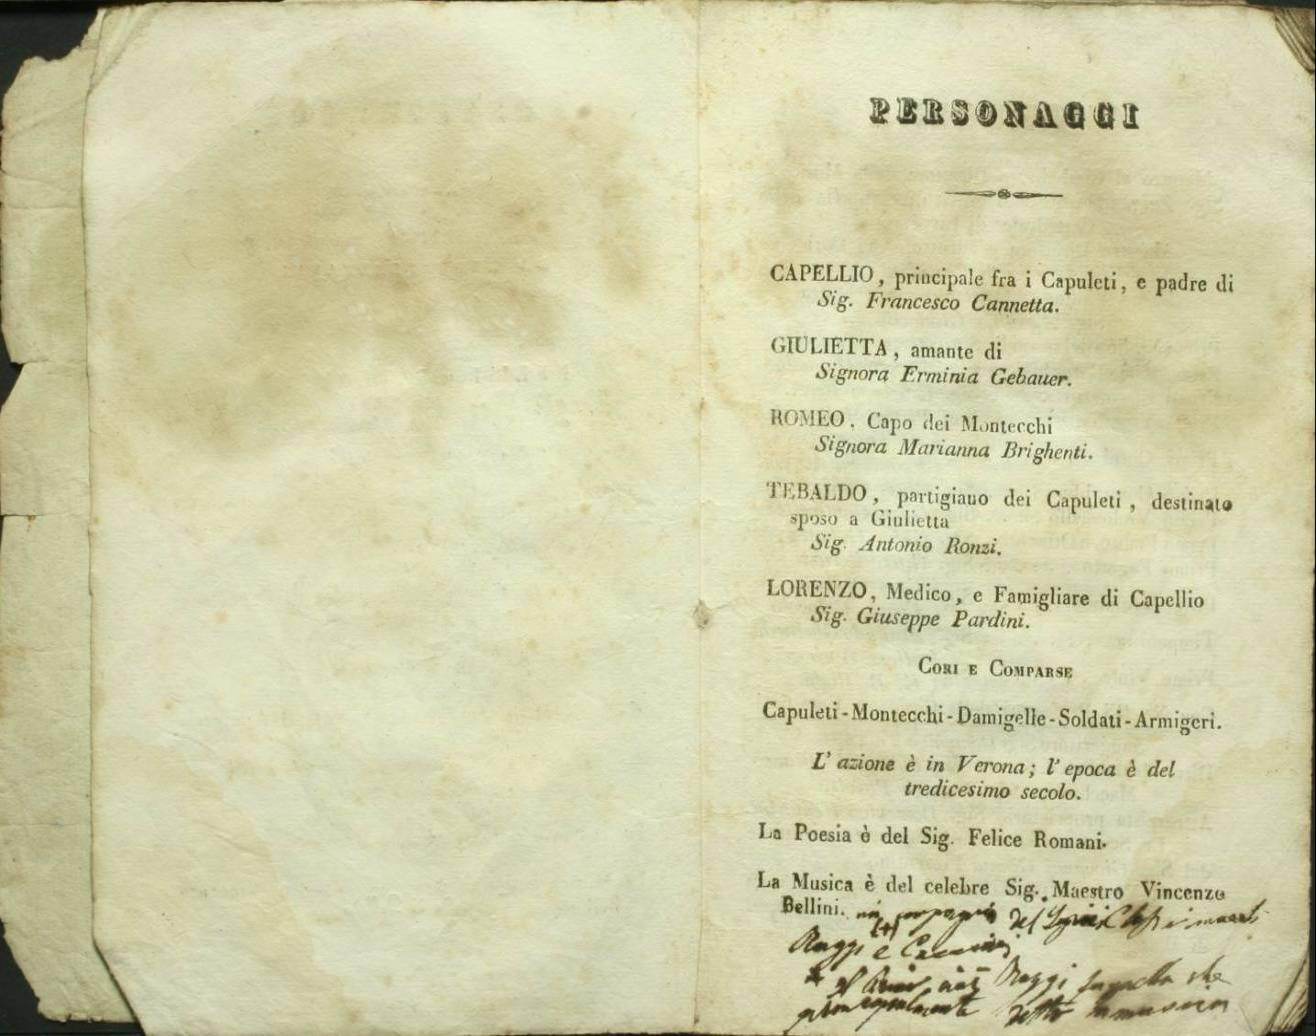 PERSONAGGI
CAPELLIO, principale fra i Capuleti, e padre di
Sig. Francesco Cannetta.
GIULIETTA, amante di
Signora Erminia Gebauer.
ROMEO, Capo dei Montecchi
Signora Marianna Brighenti.
TEBALDO, partigiano dei Capuleti, destinato
sposo a Giulietta
Sig. Antonio Ronzi.
LORENZO, Medico, e Famigliare di Capellio
Sig. Giuseppe Pardini.
CORI E COMPARSE
Capuleti-Montecchi-Damigelle-Soldati-Armigeri.
L' azione è in Verona; l' epoca è del
tredicesimo secolo.
La Poesia è del Sig. Felice Romani.
La Musica è del celebre Sig. Maestro Vincenzo
Bellini.
Raggi e
Raggi
principalmente